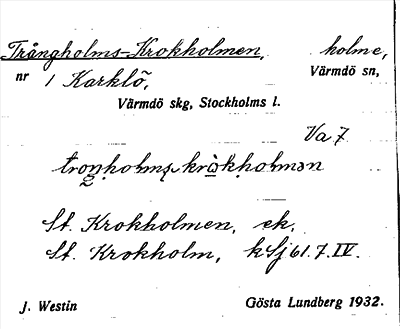 Trångholms-Krokholmen, holme,
nr 1 Karklö, Värmdö sn,
Värmdö skg, Stockholms l.
Va 7
St. Krokholmen, ek.
St. Krokholm, kSj 61.7.IV.
J. Westin Gösta Lundberg 1932.